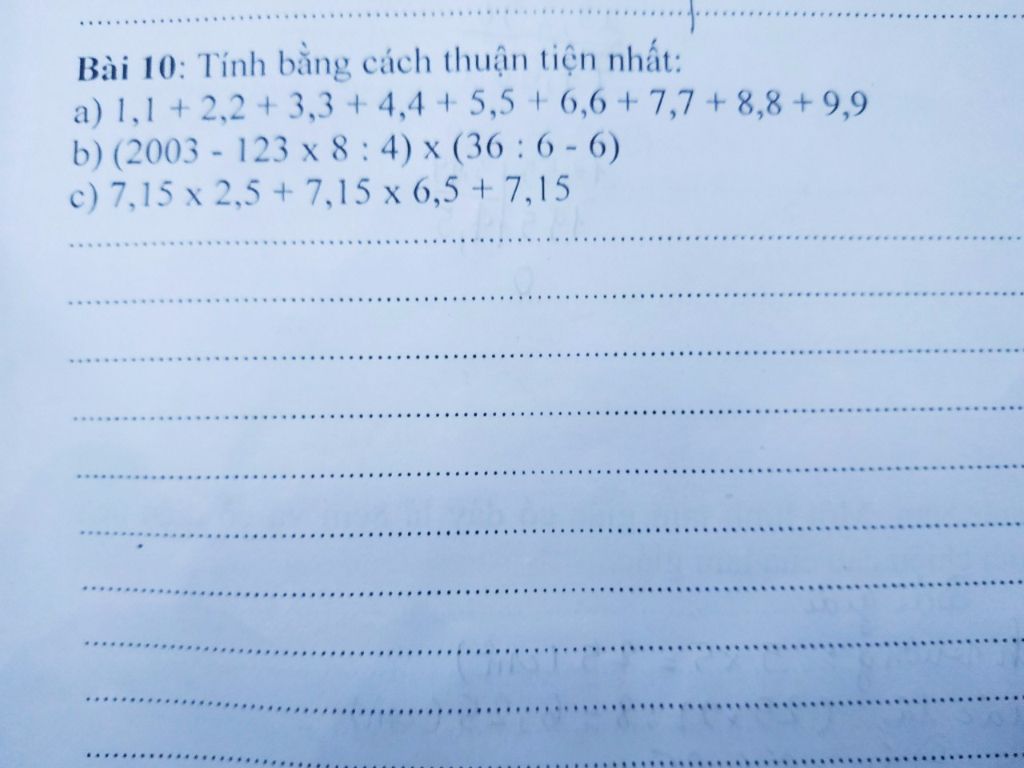 Bài 10: Tính bằng cách thuận tiện nhất:
a) 1,1 + 2,2 + 3,3 + 4,4 + 5,5 + 6,6 + 7,7 + 8,8 + 9,9
b) (2003 - 123 x 8 : 4) x (36 : 6 - 6)
c) 7,15 x 2,5 + 7,15 x 6,5 + 7,15